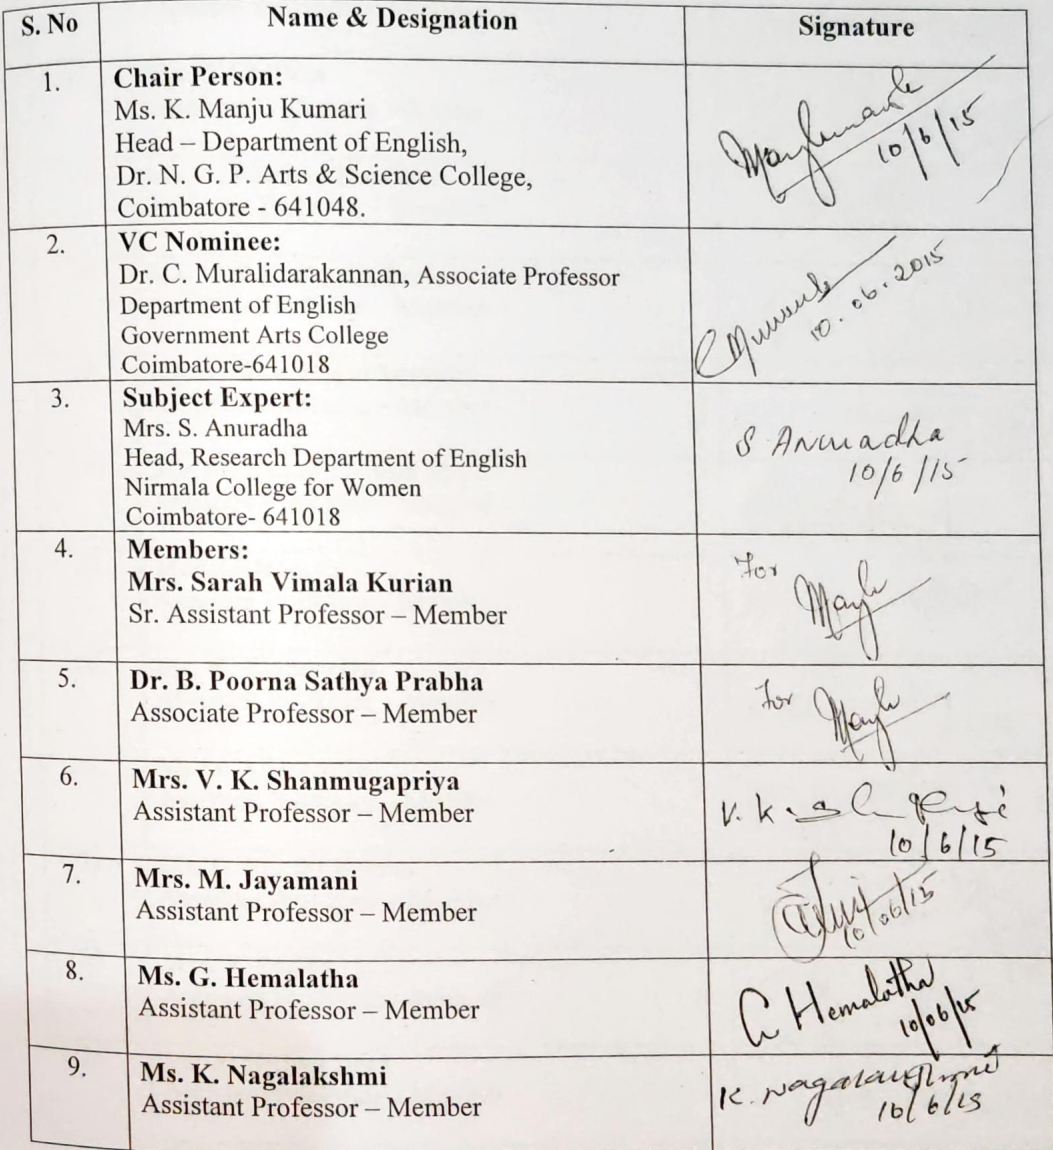 S. No Name & Designation Signature
1. Chair Person:
Ms. K. Manju Kumari
Head – Department of English,
Dr. N. G. P. Arts & Science College,
Coimbatore - 641048.
10/6/15
2. VC Nominee:
Dr. C. Muralidarakannan, Associate Professor
Department of English
Government Arts College
Coimbatore-641018
10.06.2015
3. Subject Expert:
Mrs. S. Anuradha
Head, Research Department of English
Nirmala College for Women
Coimbatore- 641018
S Anuradha
10/6/15
4. Members:
Mrs. Sarah Vimala Kurian
Sr. Assistant Professor – Member
For
5. Dr. B. Poorna Sathya Prabha
Associate Professor – Member
for
6. Mrs. V. K. Shanmugapriya
Assistant Professor – Member
V. K.
10/6/15
7. Mrs. M. Jayamani
Assistant Professor – Member
10/06/15
8. Ms. G. Hemalatha
Assistant Professor – Member
G Hemalatha
10/06/15
9. Ms. K. Nagalakshmi
Assistant Professor – Member
K. Nagalakshmi
10/6/15